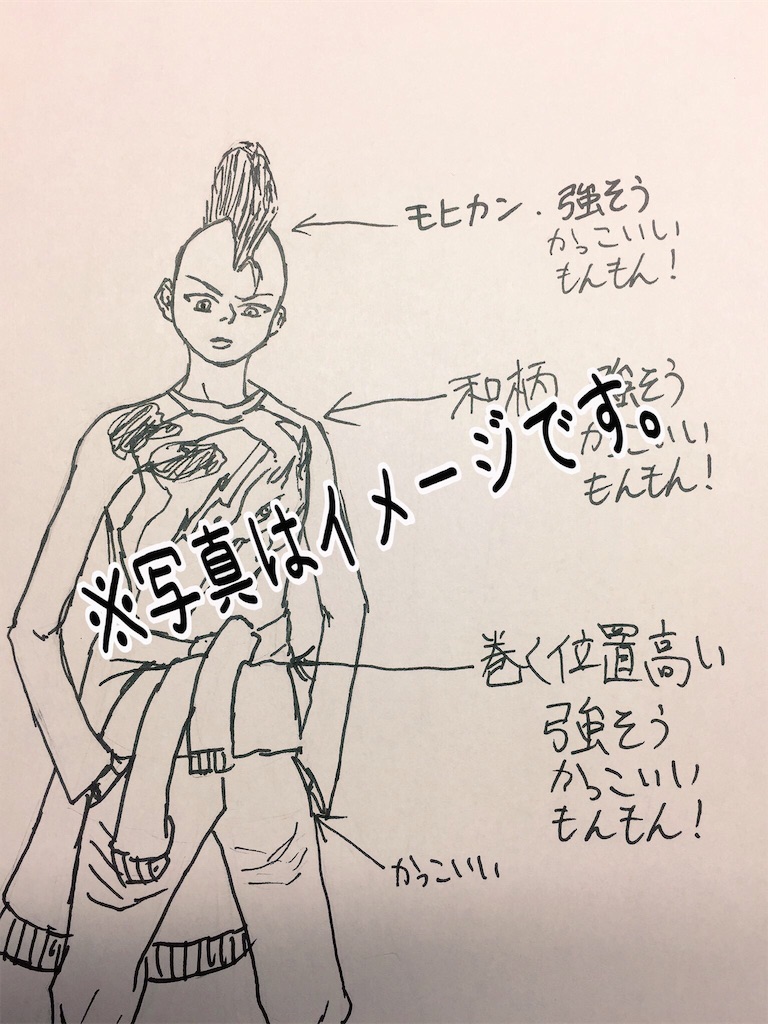 モヒカン. 強そう
かっこいい
もんもん!
和柄 強そう
かっこいい
もんもん!
※写真はイメージです。
巻く位置高い
強そう
かっこいい
もんもん!
かっこいい